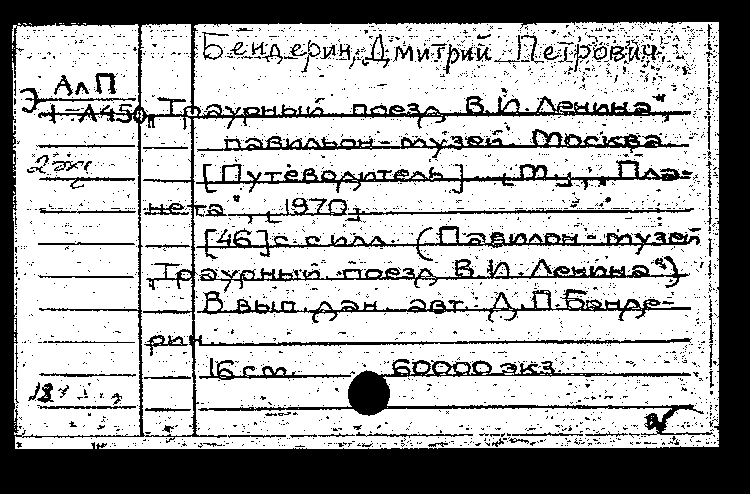 Бендерин, Дмитрий Петрович.
АлП
Э
1-А450
„Траурный поезд В.И.Ленина",
павильон-музей. Москва
2 экз
[Путеводитель] [М.], „Пла-
нета", [1970]
[46]с. с илл. (Павильон-музей
„Траурный поезд В.И.Ленина")
В вып. дан. авт.: Д.П.Бенде-
рин.
16 см. 60000 экз.